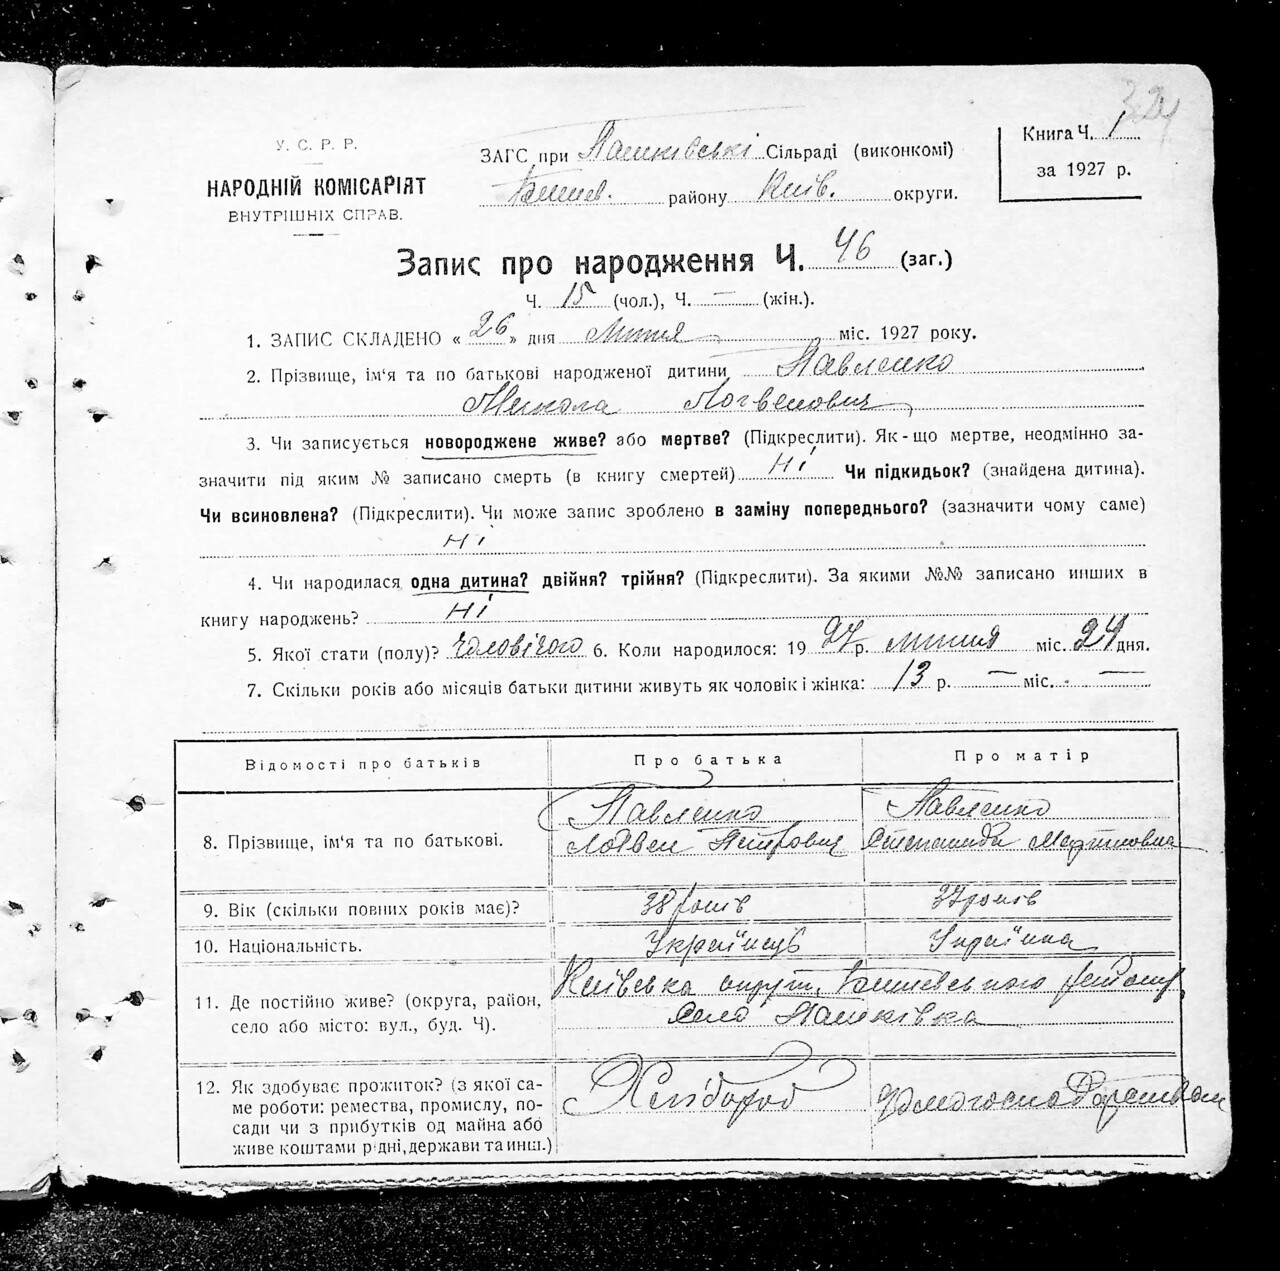 324
У. С. Р. Р.
НАРОДНІЙ КОМІСАРІЯТ
ВНУТРІШНІХ СПРАВ.
ЗАГС при Пашківські Сільраді (виконкомі)
Бишев. району Київ. округи.
Книга Ч. 1
за 1927 р.
Запис про народження Ч. 46 (заг.)
Ч. 15 (чол.), Ч. — (жін.).
1. ЗАПИС СКЛАДЕНО « 26 » дня липня міс. 1927 року.
2. Прізвище, ім‘я та по батькові народженої дитини Павленко
Микола Логвенович
3. Чи записується новороджене живе? або мертве? (Підкреслити). Як-що мертве, неодмінно за-
значити під яким № записано смерть (в книгу смертей) ні Чи підкидьок? (знайдена дитина).
Чи всиновлена? (Підкреслити). Чи може запис зроблено в заміну попереднього? (зазначити чому саме)
ні
4. Чи народилася одна дитина? двійня? трійня? (Підкреслити). За якими №№ записано инших в
книгу народжень? ні
5. Якої стати (полу)? чоловічого 6. Коли народилося: 19 27 р. липня міс. 24 дня.
7. Скільки років або місяців батьки дитини живуть як чоловік і жінка: 13 р. — міс. —
Відомості про батьків Про батька Про матір
8. Прізвище, ім‘я та по батькові.
Павленко
Логвен Петрович
Павленко
Степанида Мартиновна
9. Вік (скільки повних років має)? 38 років 37 років
10. Національність. Українець Українка
11. Де постійно живе? (округа, район,
село або місто: вул., буд. Ч).
Київська округ. Бишевського району
Село Пашківка
12. Як здобуває прожиток? (з якої са-
ме роботи: ремества, промислу, по-
сади чи з прибутків од майна або
живе коштами рідні, держави та инш.)
Хлібороб